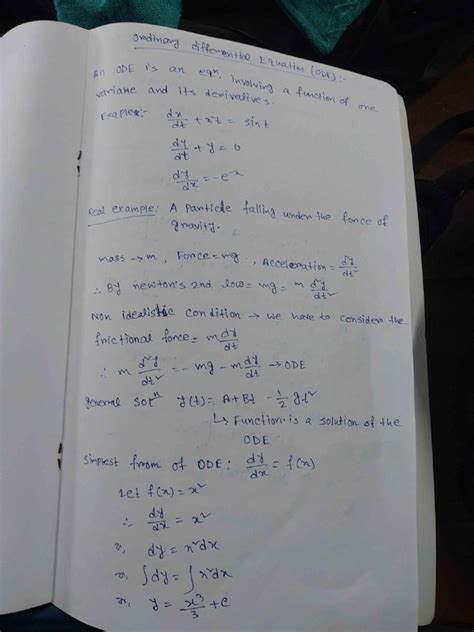 Ordinary differential Equation (ODE):-
An ODE is an eqn. involving a function of one
variane and its derivatives.
Exaples:- dx/dt + x²t = sint
dy/dt + y = 0
dy/dx = -e⁻ˣ
Real example: A Particle falling under the force of
gravity.
mass → m, Force = mg, Acceleration = d²y/dt²
∴ By newton's 2nd low = mg = m d²y/dt²
Non idealistic condition → we have to consider the
frictional force = m dy/dt
∴ m d²y/dt² = -mg - m dy/dt → ODE
general solⁿ y(t) = A+Bt - 1/2 gt²
↳ Function is a solution of the
ODE
Simplest from of ODE: dy/dx = f(x)
Let f(x) = x²
∴ dy/dx = x²
or, dy = x²dx
or, ∫dy = ∫x²dx
or, y = x³/3 + c